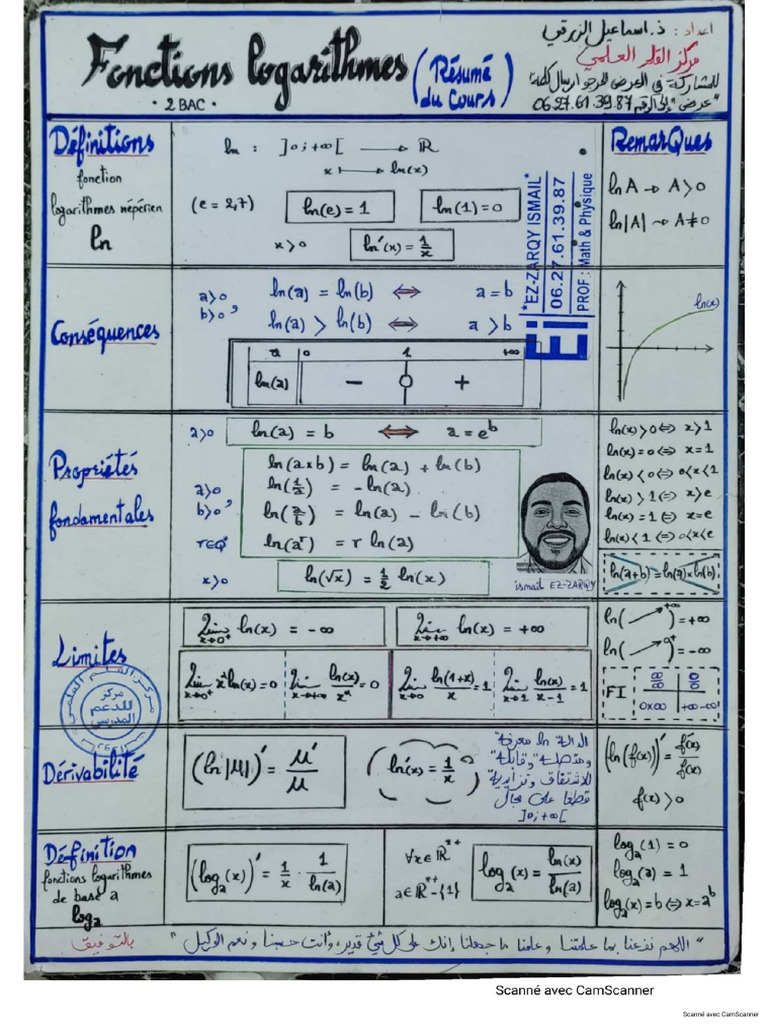 Fonctions logarithmes (Résumé du Cours)
• 2 BAC •
اعداد : ذ. اسماعيل الزرقي
مركز القلم العلمي
للمشاركة في العرض المرجو ارسال كلمة
"عرض" إلى الرقم 06.27.61.39.87
Définitions
fonction
logarithmes népérien
ln
ln : ]0;+∞[ → ℝ
x ↦ ln(x)
(e = 2,7) ln(e) = 1 ln(1) = 0
x>0 ln'(x) = 1/x
"EZ-ZARQY ISMAIL"
06.27.61.39.87
PROF : Math & Physique
Ei
RemarQues
ln A → A>0
ln|A| → A≠0
Conséquences
a>0
b>0 ,
ln(a) = ln(b) ⇔ a = b
ln(a) > ln(b) ⇔ a > b
a 0 1 +∞
ln(a) − 0 +
ln(x)
Propriétés
fondamentales
a>0 ln(a) = b ⇔ a = e^b
ln(a×b) = ln(a) + ln(b)
a>0 ln(1/a) = -ln(a)
b>0 , ln(a/b) = ln(a) - ln(b)
r∈Q* ln(a^r) = r ln(a)
x>0 ln(√x) = 1/2 ln(x)
ismail EZ-ZARQY
ln(x)>0 ⇔ x>1
ln(x)=0 ⇔ x=1
ln(x)<0 ⇔ 0<x<1
ln(x)>1 ⇔ x>e
ln(x)=1 ⇔ x=e
ln(x)<1 ⇔ 0<x<e
ln(a+b) = ln(a)×ln(b)
Limites
Lim x→0⁺ ln(x) = -∞ Lim x→+∞ ln(x) = +∞
Lim x→0⁺ xⁿ ln(x) = 0 Lim x→+∞ ln(x)/xⁿ = 0 Lim x→0 ln(1+x)/x = 1 Lim x→1 ln(x)/x-1 = 1
ln( → +∞) = +∞
ln( → 0⁺) = -∞
FI ∞/∞ 0/0
0×∞ +∞-∞
مركز القلم العلمي
مركز
للدعم
المدرسي
Dérivabilité
(ln|μ|)' = μ'/μ
ln'(x) = 1/x
الدالة ln معرفة
ومتصلة وقابلة
للاشتقاق وتزايدية
قطعا على مجال
]0;+∞[
(ln(f(x)))' = f'(x)/f(x)
f(x) > 0
Définition
fonctions logarithmes
de base a
log_a
(log_a(x))' = 1/x · 1/ln(a)
∀x∈ℝ*⁺
a∈ℝ*⁺-{1}
log_a(x) = ln(x)/ln(a)
log_a(1) = 0
log_a(a) = 1
log_a(x)=b ⇔ x=a^b
"اللهم نفعنا بما علمتنا وعلمنا ما جهلنا إنك على كل شيء قدير، وأنت حسبنا ونعم الوكيل" بالتوفيق
Scanné avec CamScanner
Scanné avec CamScanner